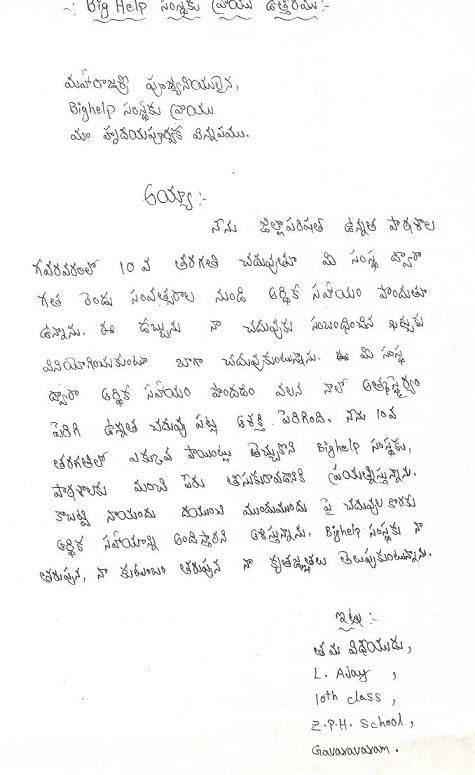 ~: Big Help సంస్థకు వ్రాయు ఉత్తరము:-
మహారాజశ్రీ పూజ్యనీయులైన,
Bighelp సంస్థకు వ్రాయు
మా హృదయపూర్వక విన్నపము.
అయ్యా :-
నేను జిల్లాపరిషత్ ఉన్నత పాఠశాల
గవరవరంలో 10 వ తరగతి చదువుతూ మి సంస్థ ద్వారా
గత రెండు సంవత్సరాల నుండి ఆర్థిక సహాయం పొందుతూ
ఉన్నాను. ఈ డబ్బును నా చదువుకు సంబంధించిన ఖర్చుకు
వినియోగించుకుంటూ బాగా చదువుకుంటున్నాను. ఈ మి సంస్థ
ద్వారా ఆర్థిక సహాయం పొందడం వలన నాలో ఆత్మస్థైర్యం
పెరిగి ఉన్నత చదువు పట్ల ఆశక్తి పెరిగింది. నేను 10వ
తరగతిలో ఎక్కువ పాయింట్లు తెచ్చుకొని Bighelp సంస్థకు,
పాఠశాలకు మంచి పేరు తీసుకురావడానికి ప్రయత్నిస్తున్నాను.
కాబట్టి నాయందు దయుంచి ముందుముందు పై చదువుల కొరకు
ఆర్థిక సహాయాన్ని అందిస్తారని ఆశిస్తున్నాను. Bighelp సంస్థకు నా
తరుపున, నా కుటుంబం తరుపున నా కృతజ్ఞతలు తెలుపుకుంటున్నాను.
ఇట్లు :-
తమ విధేయుడు,
L. Ajay ,
10th class ,
Z.P.H. School,
Gavaravaram.